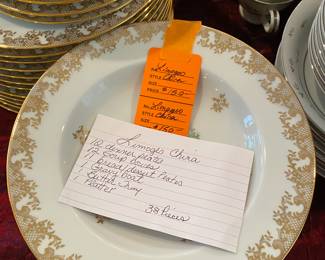 No. Limoges
STYLE China
SIZE
PRICE $150-
No. Limoges
STYLE China
SIZE
$150-
Limoges China
10 dinner plates
Soup bowls
Bread/dessert plates
1 Gravy boat
1 Butter Tray
1 Platter
38 Pieces